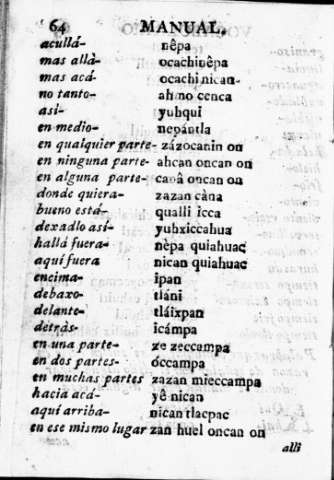 64 MANUAL,
acullá- nêpa
mas allà- ocachinêpa
mas acá- ocachi nican-
no tanto- ahmo cenca
asi- yuhqui
en medio- nepántla
en qualquier parte- zázocanin on
en ninguna parte- ahcan oncan on
en alguna parte- canâ oncan on
donde quiera- zazan càna
bueno está- qualli icca
dexadlo así- yuhxiccahua
hallá fuera- nèpa quiahuac
aquí fuera nican quiahuac
encima- ipan
debaxo- tláni
delante- tláixpan
detràs- icámpa
en una parte- ze zeccampa
en dos partes- óccampa
en muchas partes zazan mieccampa
hacia acá- yê nican
aquí arriba- nican tlacpac
en ese mismo lugar zan huel oncan on
alli